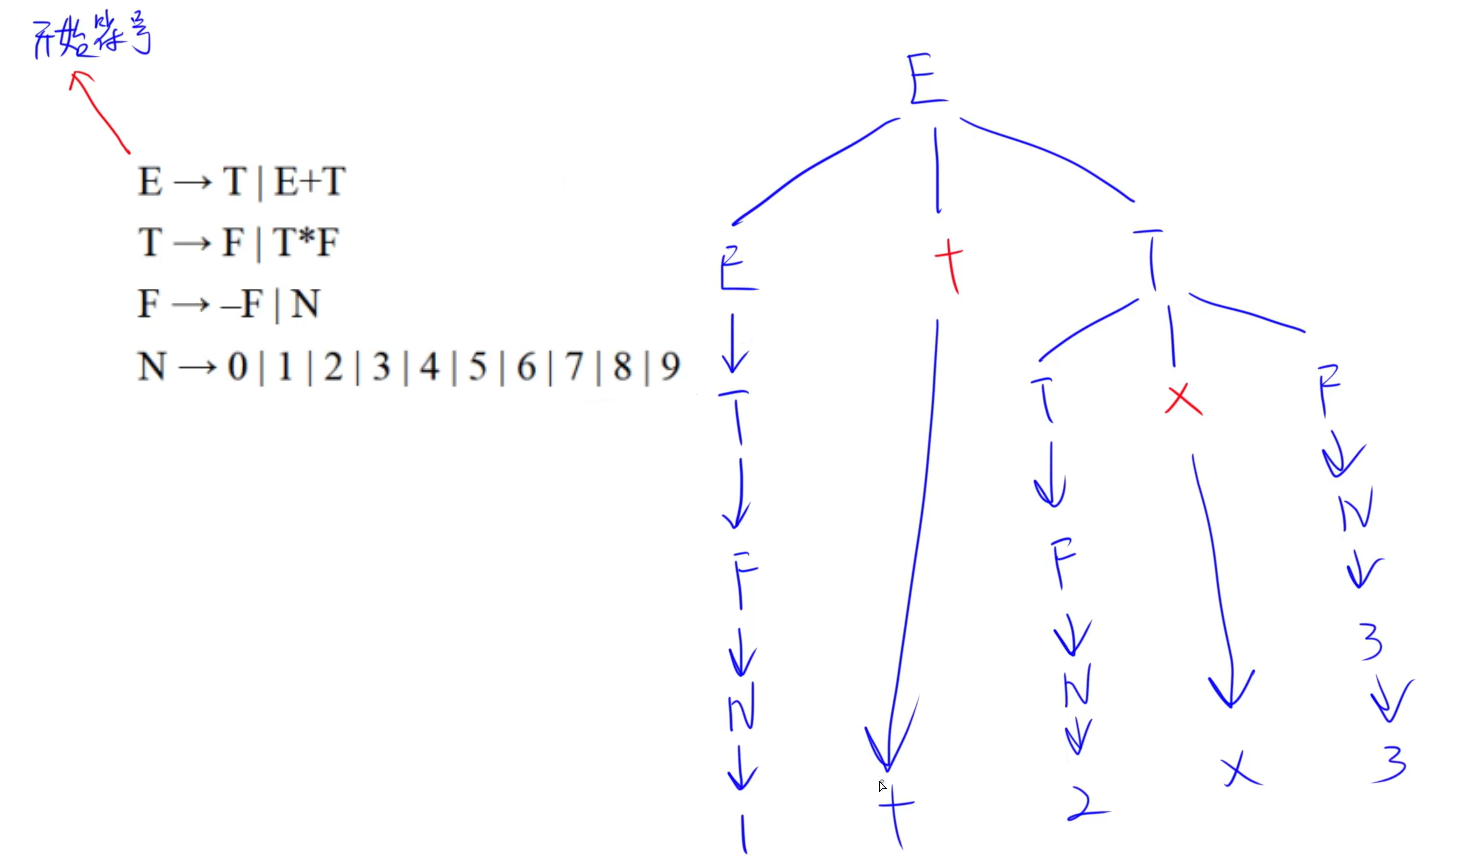 开始符号
E → T | E+T
T → F | T*F
F → –F | N
N → 0 | 1 | 2 | 3 | 4 | 5 | 6 | 7 | 8 | 9
E
E + T
T T × F
F F N
N N 3
1 + 2 × 3